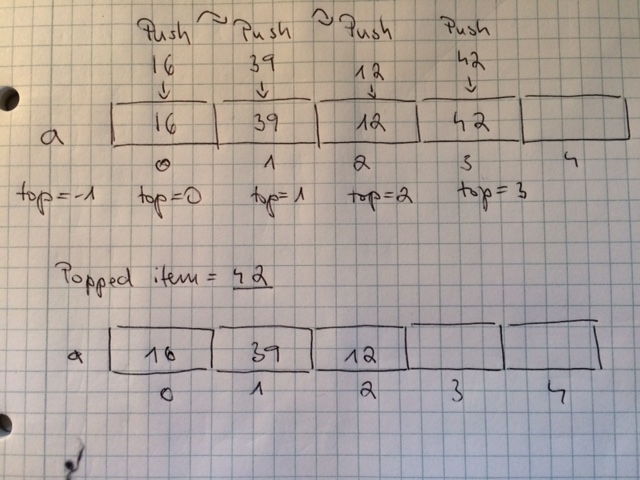 Push ~ Push ~ Push Push
16 39 12 42
↓ ↓ ↓ ↓
a 16 39 12 42
0 1 2 3 4
top=-1 top=0 top=1 top=2 top=3
Popped item = 42
a 16 39 12
0 1 2 3 4